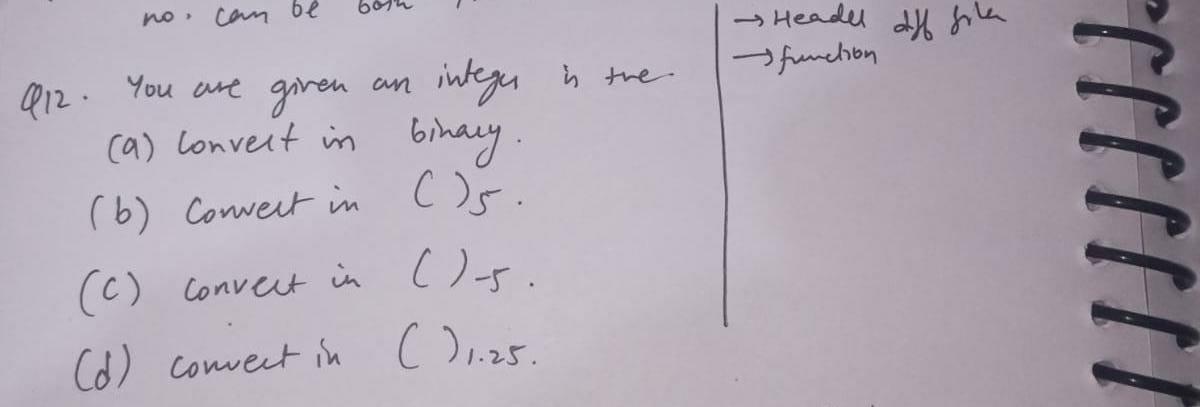 no. can be both
→ Header diff files
→ function
Q12. You are given an integer is +ve.
(a) Convert in binary.
(b) Convert in ( )5.
(c) convert in ( )-5.
(d) convert in ( )1.25.